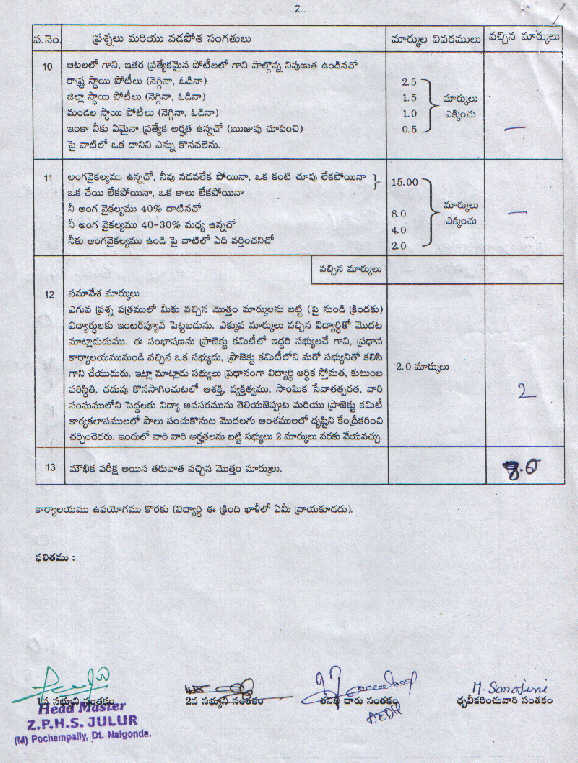 2
ప.నెం. ప్రశ్నలు మరియు వడపోత సంగతులు మార్కుల వివరములు వచ్చిన మార్కులు
10 ఆటలలో గాని, ఇతర ప్రత్యేకమైన పోటీలలో గాని పాల్గొన్న నిపుణత ఉండినచో
రాష్ట్ర స్థాయి పోటీలు (నెగ్గినా, ఓడినా) 2.5
జిల్లా స్థాయి పోటీలు (నెగ్గినా, ఓడినా) 1.5 మార్కులు
మండల స్థాయి పోటీలు (నెగ్గినా, ఓడినా) 1.0 ఎక్కించు
ఇంకా నీకు ఏమైనా ప్రత్యేక అర్హత ఉన్నచో (ఋజువు చూపించి) 0.5 —
పై వాటిలో ఒక దానిని ఎన్ను కొనవలెను.
11 అంగవైకల్యము ఉన్నచో, నీవు నడవలేక పోయినా, ఒక కంటి చూపు లేకపోయినా 15.00
ఒక చేయి లేకపోయినా, ఒక కాలు లేకపోయినా
నీ అంగ వైకల్యము 40% దాటినచో 8.0 మార్కులు —
నీ అంగ వైకల్యము 40-30% మధ్య ఉన్నచో 4.0 ఎక్కించు
నీకు అంగవైకల్యము ఉండి పై వాటిలో ఏది వర్తించనిచో 2.0
వచ్చిన మార్కులు
12 సమావేశ మార్కులు
ఎగువ ప్రశ్న పత్రములో మీకు వచ్చిన మొత్తం మార్కులను బట్టి (పై నుండి క్రిందకు)
విద్యార్థులకు ఇంటర్వ్యూవ్ పెట్టబడును. ఎక్కువ మార్కులు వచ్చిన విద్యార్థితో మొదట
మాట్లాడుదుము. ఈ సంభాషణను ప్రాజెక్టు కమిటీలో ఇద్దరి సభ్యులచే గాని, ప్రధాన
కార్యాలయమునుండి వచ్చిన ఒక సభ్యుడు, ప్రాజెక్టు కమిటీలోని మరో సభ్యునితో కలిసి
గాని చేయుదురు. ఇట్లా మాట్లాడు సభ్యులు ప్రధానంగా విద్యార్థి ఆర్థిక స్తోమత, కుటుంబ 2.0 మార్కులు
పరిస్థితి, చదువు కొనసాగించుటలో ఆశక్తి, వ్యక్తిత్వము, సాంఘిక సేవాతత్పరత, వారి 2
సంఘములోని పెద్దలకు విద్యా అవసరమును తెలియజెప్పుట మరియు ప్రాజెక్టు కమిటీ
కార్యకలాపములలో పాలు పంచుకొనుట మొదలగు అంశములలో దృష్టిని కేంద్రీకరించి
చర్చించెదరు. ఇందులో వారి వారి అర్హతలను బట్టి సభ్యులు 2 మార్కులు వరకు వేయవచ్చు
13 మౌఖిక పరీక్ష అయిన తరువాత వచ్చిన మొత్తం మార్కులు. 8.0
కార్యాలయము ఉపయోగము కొరకు (విద్యార్థి ఈ క్రింది ఖాళీలో ఏమీ వ్రాయకూడదు).
ఫలితము :
M. Sarojini
1వ సభ్యుని సంతకం 2వ సభ్యుని సంతకం తనిఖీ దారు సంతకం ధృవీకరించువారి సంతకం
Head Master
Z.P.H.S. JULUR
(M) Pochempally, Dt. Nalgonda.